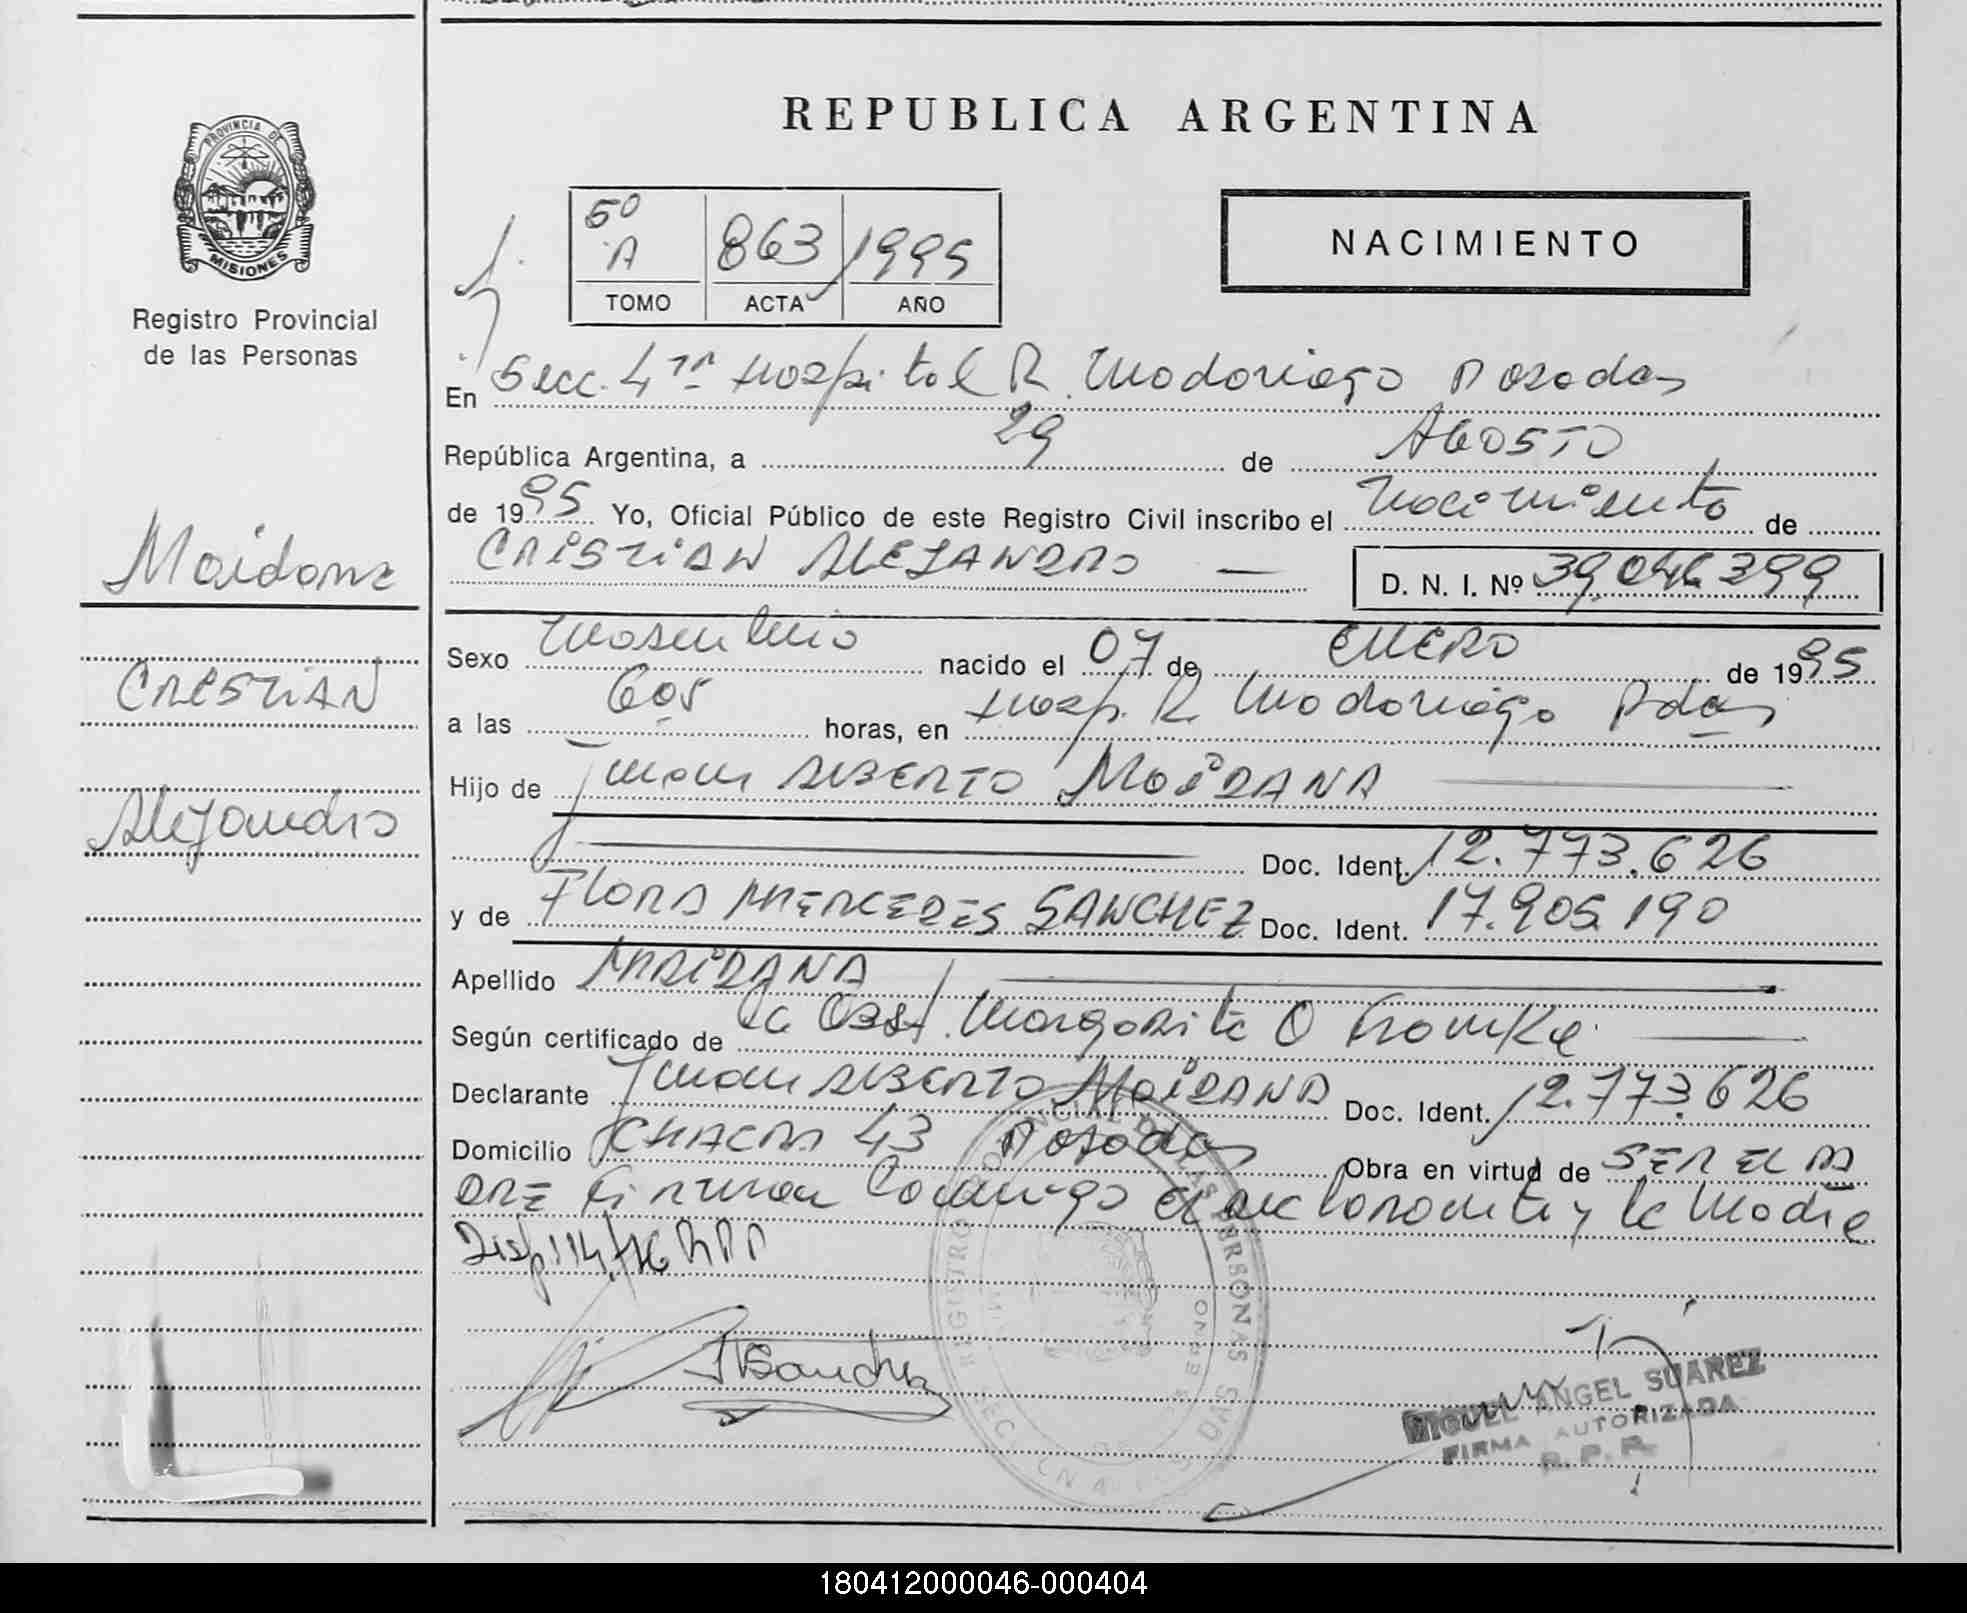 PROVINCIA DE
MISIONES
Registro Provincial
de las Personas
Maidana
CRISTIAN
Alejandro
REPUBLICA ARGENTINA
5º
A 863 1995
TOMO ACTA AÑO
NACIMIENTO
En Secc. 4ta Hospital R. Madariaga Posadas
República Argentina, a 29 de AGOSTO
de 1995 Yo, Oficial Público de este Registro Civil inscribo el Nacimiento de
CRISTIAN ALEJANDRO — D. N. I. Nº 39.046.399
Sexo Masculino nacido el 07 de ENERO de 1995
a las 6 05 horas, en Hosp. R. Madariaga Pdas
Hijo de Juan ALBERTO MAIDANA
Doc. Ident. 12.773.626
y de FLORA MERCEDES SANCHEZ Doc. Ident. 17.905.190
Apellido MAIDANA
Según certificado de la Obst. Margarita O
Declarante Juan ALBERTO MAIDANA Doc. Ident. 12.773.626
Domicilio CHACRA 43 Posadas Obra en virtud de SER EL PA
DRE Firman Conmigo el declarante y la Madre
Disp. 114/76 RPP
FSanchez
REGISTRO PROVINCIAL DE LAS PERSONAS
MIGUEL ANGEL SUAREZ
FIRMA AUTORIZADA
R. P. P.
180412000046-000404